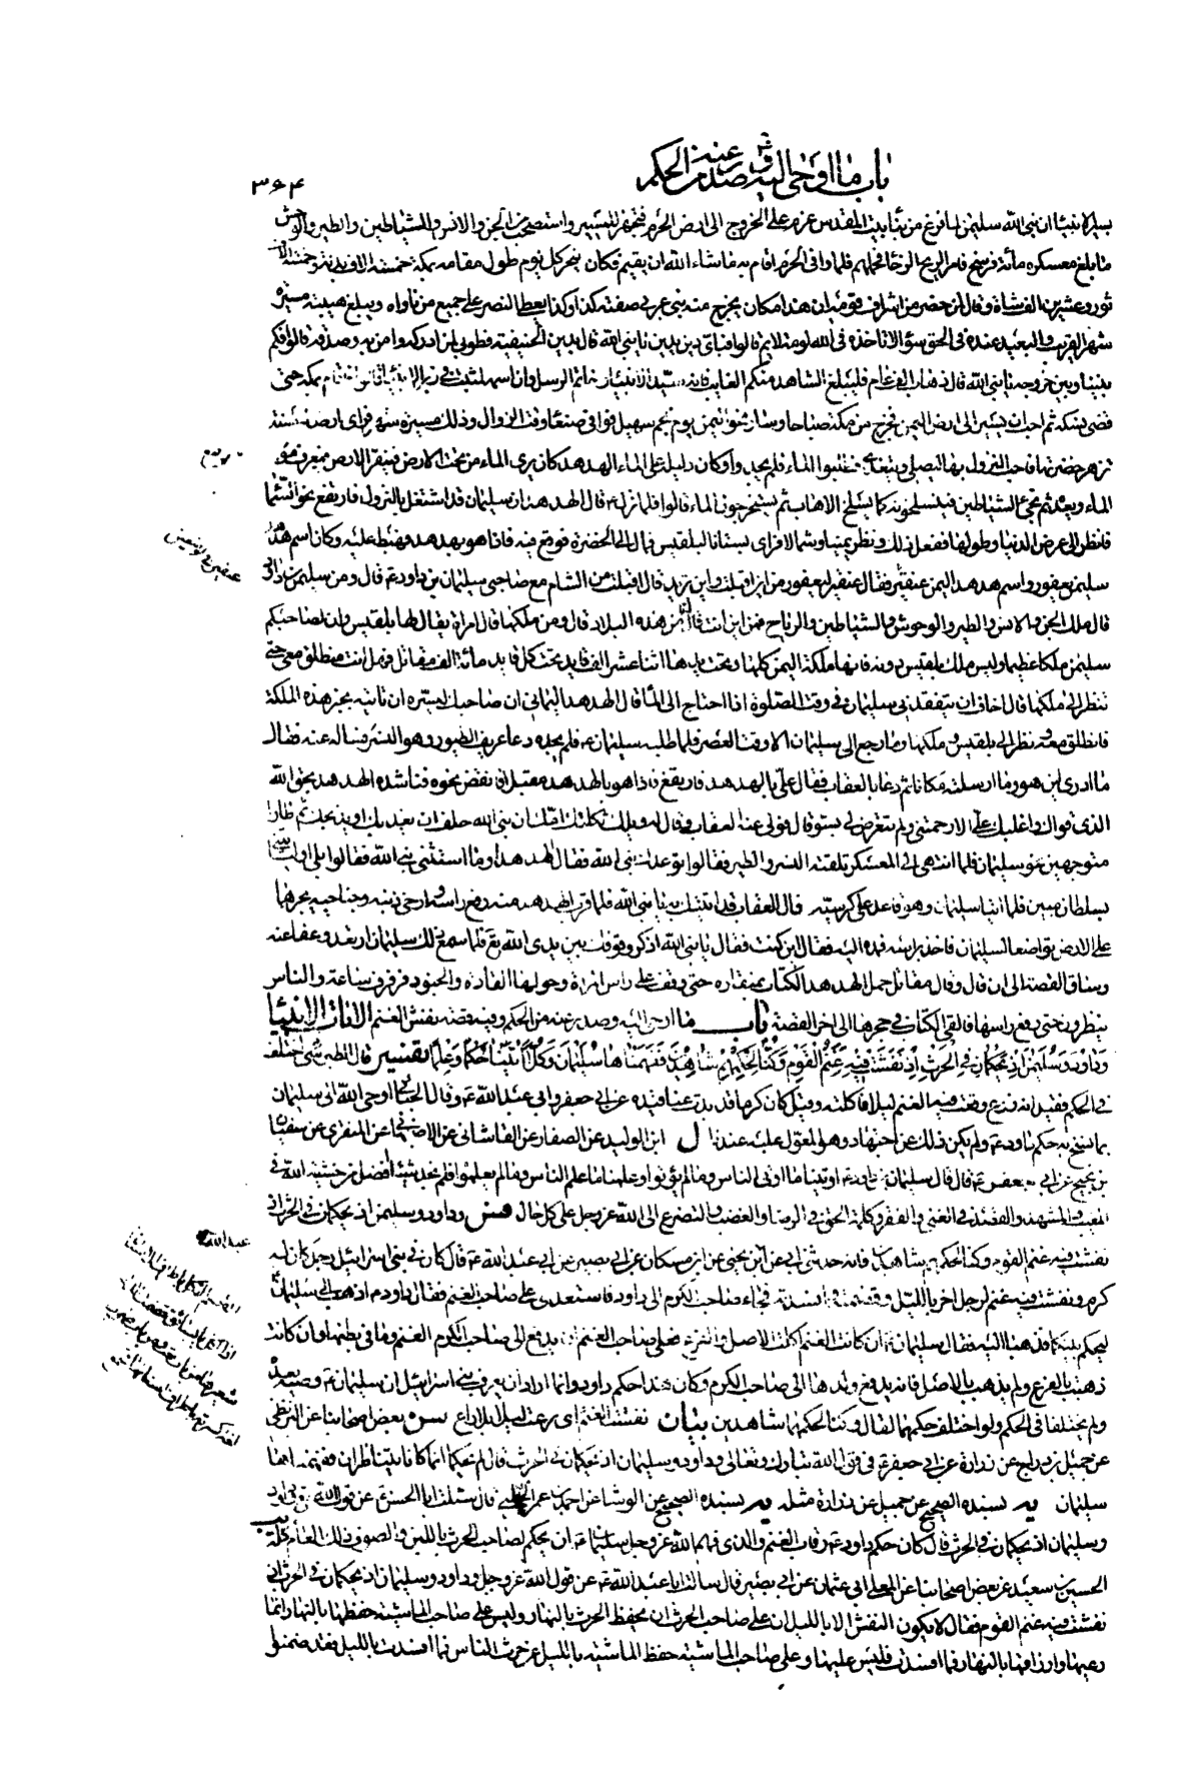 باب ما اوحى اليه و صدر عنه من الحكم
٣٦٤
سير الانبيا ان نبى الله سليمن لما فرغ من بنا بيت المقدس عزم على الخروج الى ارض الحرم فتجهز للمسير واستصحب من الجن والانس والشياطين والطير والوحش
ما بلغ معسكره مائة فرسخ فامر الريح الرخا فحملتهم فلما وافى الحرم اقام به ما شاء الله ان يقيم فكان ينحر كل يوم طول مقامه بمكة خمسة الاف بدنة وخمسة الاف
ثور وعشرين الف شاة وقال لمن حضر من اشراف قومه ان هذا مكان يخرج منه نبى عربى صفته كذا وكذا يعطى النصر على جميع من ناواه ويبلغ هيبته مسيرة
شهر القريب والبعيد عنده فى الحق سواء لا تاخذه فى الله لومة لائم قالوا فباى دين يدين يا نبى الله قال بدين الحنيفية فطوبى لمن ادركه وامن به وصدقه قالوا فكم
بيننا وبين خروجه يا نبى الله قال زهاء الف عام فليبلغ الشاهد منكم الغايب فانه سيد الانبيا وخاتم الرسل وان اسمه لمثبت فى زبر الانبيا قال فاقام بمكة حتى
قضى نسكه ثم احب ان يسير الى ارض اليمن فخرج من مكة صباحا وسار نحو اليمن يوم نجم سهيل فوافى صنعا وقت الزوال وذلك مسيرة شهر فراى ارضا حسنة
تزهر خضرتها فاحب النزول بها ليصلى ويتغدى فطلبوا الماء فلم يجدوا وكان دليله على الماء الهدهد كان يرى الماء من تحت الارض فينقر الارض فيعرف موضع
الماء وبعده ثم تجىء الشياطين فيسلخونه كما يسلخ الاهاب ثم يستخرجون الماء قالوا فلما نزل قال الهدهد ان سليمان قد اشتغل بالنزول فارتفع نحو السما
فانظر الى عرض الدنيا وطولها ففعل ذلك ونظر يمينا وشمالا فراى بستانا لبلقيس فمال الى الخضرة فوقع فيه فاذا هو بهدهد فهبط عليه وكان اسم هدهد
سليمن يعفور واسم هدهد اليمن عنفير فقال عنفير ليعفور من اين اقبلت واين تريد قال اقبلت من الشام مع صاحبى سليمان بن داود ع قال ومن سليمن بن داود
قال ملك الجن والانس والطير والوحوش والشياطين والرياح فمن اين انت قال من هذه البلاد قال ومن ملكها قال امراة يقال لها بلقيس وان لصاحبكم
سليمن ملكا عظيما وليس ملك بلقيس دونه فانها ملكة اليمن كلها وتحت يدها اثنا عشر الف قايد تحت كل قايد مائة الف مقاتل فهل انت منطلق معى حتى
تنظر الى ملكها قال اخاف ان يتفقدنى سليمان فى وقت الصلوة اذا احتاج الى الماء قال الهدهد اليمانى ان صاحبك ليسره ان تاتيه بخبر هذه الملكة
فانطلق معه ونظر الى بلقيس وملكها وما رجع الى سليمان الا وقت العصر فلما طلبه سليمان ع فلم يجده دعا عريف الطيور وهو النسر فساله عنه فقال
ما ادرى اين هو وما ارسلته مكانا ثم دعا بالعقاب فقال على بالهدهد فارتفع فاذا هو بالهدهد مقبلا فانقض نحوه فناشده الهدهد بحق الله
الذى قواك واغلبك على الا رحمتنى ولم تتعرض لى بسوء قال فولى عنه العقاب وقال له ويلك ثكلتك امك ان نبى الله حلف ان يعذبك او يذبحك ثم طارا
متوجهين نحو سليمان فلما انتهى الى المعسكر تلقته النسر والطير فقالوا توعدك نبى الله فقال الهدهد او ما استثنى نبى الله فقالوا بلى او ليأتينى
بسلطان مبين فلما اتيا سليمان وهو قاعد على كرسيه قال العقاب قد اتيتك به يا نبى الله فلما قرب الهدهد منه رفع راسه وارخى ذنبه وجناحيه يجرهما
على الارض تواضعا لسليمان فاخذ براسه فمده اليه فقال اين كنت فقال يا نبى الله اذكر وقوفك بين يدى الله تع فلما سمع ذلك سليمان ارتعد وعفا عنه
وساق القصة الى ان قال وقال مقاتل حمل الهدهد الكتاب بمنقاره حتى وقف على راس المراة وحولها القادة والجنود فرفرف ساعة والناس
ينظرون حتى رفع راسها فالقى الكتاب فى حجرها الى اخر القصة باب ما اوحى اليه وصدر عنه من الحكم وفيه قصة نفش الغنم الايات الانبيا
وداود وسليمن اذ يحكمان فى الحرث اذ نفشت فيه غنم القوم وكنا لحكمهم شاهدين ففهمناها سليمان وكلا آتينا حكما وعلما تفسير قال الطبرسى اختلف
فى الحكم فقيل انه زرع وقعت فيه الغنم ليلا فاكلته وقيل كان كرما قد بدت عناقيده عن ابى جعفر وابى عبد الله ع وقال الجبائى اوحى الله الى سليمان
بما نسخ به حكم داود ع ولم يكن ذلك عن اجتهاد وهو المعول عليه عندنا ل ابن الوليد عن الصفار عن القاشانى عن الاصفهانى عن المنقرى عن سفيان
بن نجيح عن ابى جعفر ع قال قال سليمان بن داود ع اوتينا ما اوتى الناس وما لم يؤتوا وعلمنا ما علم الناس وما لم يعلموا فلم نجد شيئا افضل من خشية الله فى
المغيب والمشهد والقصد فى الغنى والفقر وكلمة الحق فى الرضا والغضب والتضرع الى الله عز وجل على كل حال فس وداود وسليمن اذ يحكمان فى الحرث اذ
نفشت فيه غنم القوم وكنا لحكمهم شاهدين فانه حدثنى ابى عن ابن يحيى عن ابن مسكان عن ابى بصير عن ابى عبد الله ع قال كان فى بنى اسرائيل رجل كان له
كرم ونفشت فيه غنم لرجل اخر بالليل وقضمته وافسدته فجاء صاحب الكرم الى داود فاستعدى على صاحب الغنم فقال داود ع اذهبا الى سليمان
ليحكم بينكما فذهبا اليه فقال سليمان ع ان كانت الغنم اكلت الاصل والفرع فعلى صاحب الغنم ان يدفع الى صاحب الكرم الغنم وما فى بطنها وان كانت
ذهبت بالفرع ولم يذهب بالاصل فانه يدفع ولدها الى صاحب الكرم وكان هذا حكم داود وانما اراد ان يعرف بنى اسرائيل ان سليمان ع وصيه بعده
ولم يختلفا فى الحكم ولو اختلف حكمهما لقال وكنا لحكمهما شاهدين بيان نفشت الغنم اى رعت ليلا بلا راع سن بعض اصحابنا عن البزنطى
عن جميل بن دراج عن زرارة عن ابى جعفر ع فى قول الله تبارك وتعالى وداود وسليمان اذ يحكمان فى الحرث قال لم يحكما انما كانا يتناظران ففهمها
سليمان يه بسنده الصحيح عن جميل عن زرارة مثله يه بسنده الصحيح عن الوشا عن احمد بن عمر الحلبى قال سئلت ابا الحسن ع عن قول الله تع وداود
وسليمان اذ يحكمان فى الحرث قال كان حكم داود ع رقاب الغنم والذى فهم الله عز وجل سليمان ع ان يحكم لصاحب الحرث باللبن والصوف ذلك العام كله يب
الحسين بن سعيد عن بعض اصحابنا عن المعلى ابى عثمان عن ابى بصير قال سالت ابا عبد الله ع عن قول الله عز وجل وداود وسليمان اذ يحكمان فى الحرث اذ
نفشت فيه غنم القوم فقال لا يكون النفش الا بالليل ان على صاحب الحرث ان يحفظ الحرث بالنهار وليس على صاحب الماشية حفظها بالنهار انما
رعيها وارزاقها بالنهار فما افسدت فليس عليها وعلى صاحب الماشية حفظ الماشية بالليل عن حرث الناس فما افسدت بالليل فقد ضمنوا
عبدالله